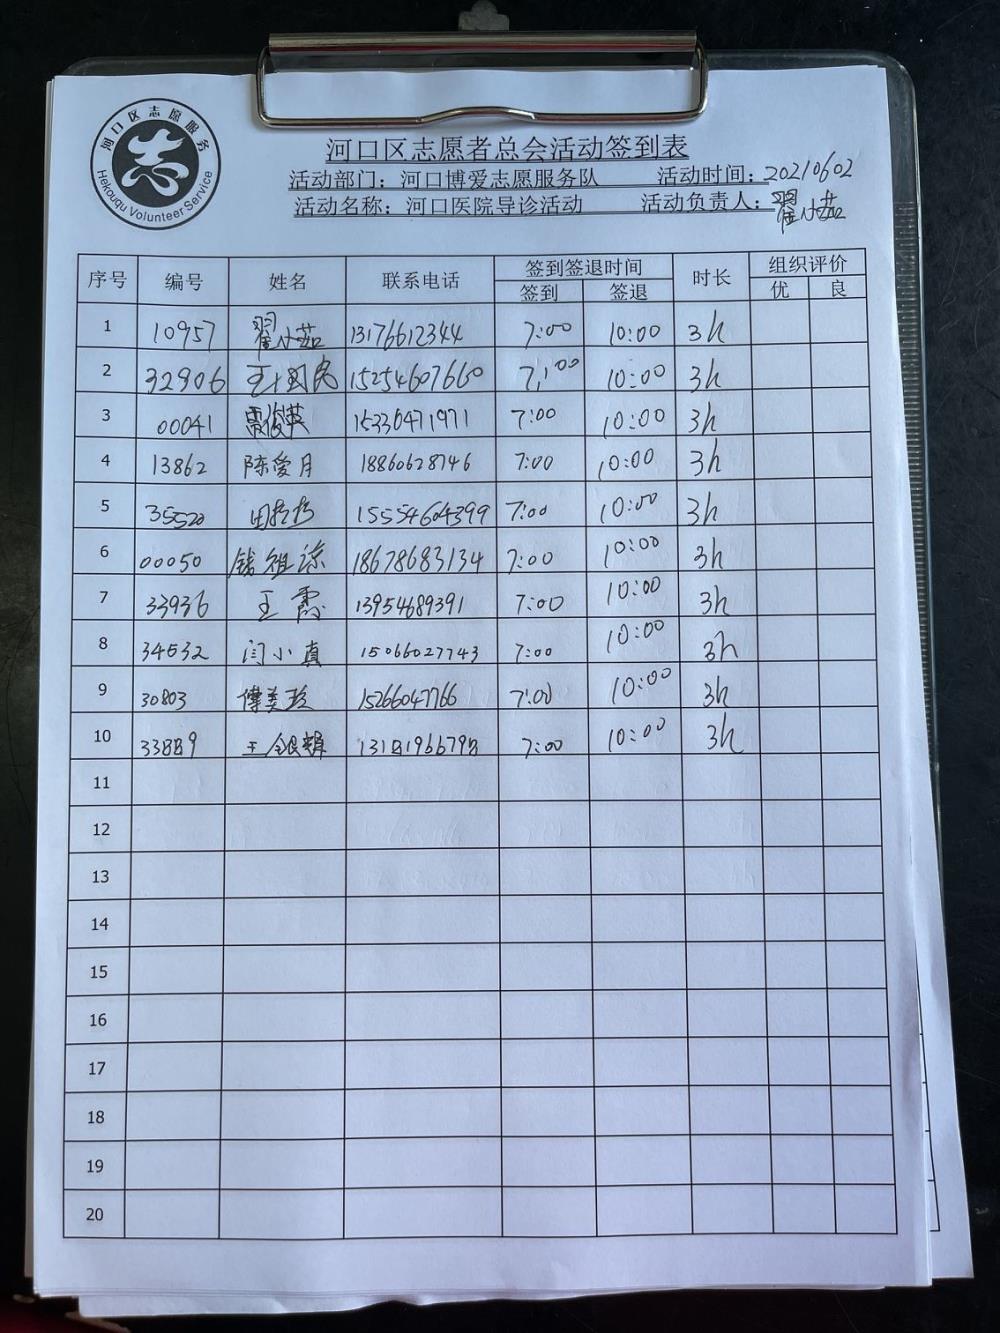 河口区志愿服务
Hekouqu Volunteer Service
志
河口区志愿者总会活动签到表
活动部门：河口博爱志愿服务队 活动时间：20210602
活动名称：河口医院导诊活动 活动负责人：翟小茹
序号 编号 姓名 联系电话 签到签退时间 时长 组织评价
签到 签退 优 良
1 10957 翟小茹 13176612344 7:00 10:00 3h
2 32906 王国民 15254607660 7:00 10:00 3h
3 00041 俊英 15330471971 7:00 10:00 3h
4 13862 陈爱月 18860628746 7:00 10:00 3h
5 35520 田 15554604399 7:00 10:00 3h
6 00050 钱祖 18678683134 7:00 10:00 3h
7 33936 王霞 13954689391 7:00 10:00 3h
8 34532 闫小真 15066027743 7:00 10:00 3h
9 30803 傅美玲 15266047766 7:00 10:00 3h
10 33889 王银辉 13181966798 7:00 10:00 3h
11
12
13
14
15
16
17
18
19
20